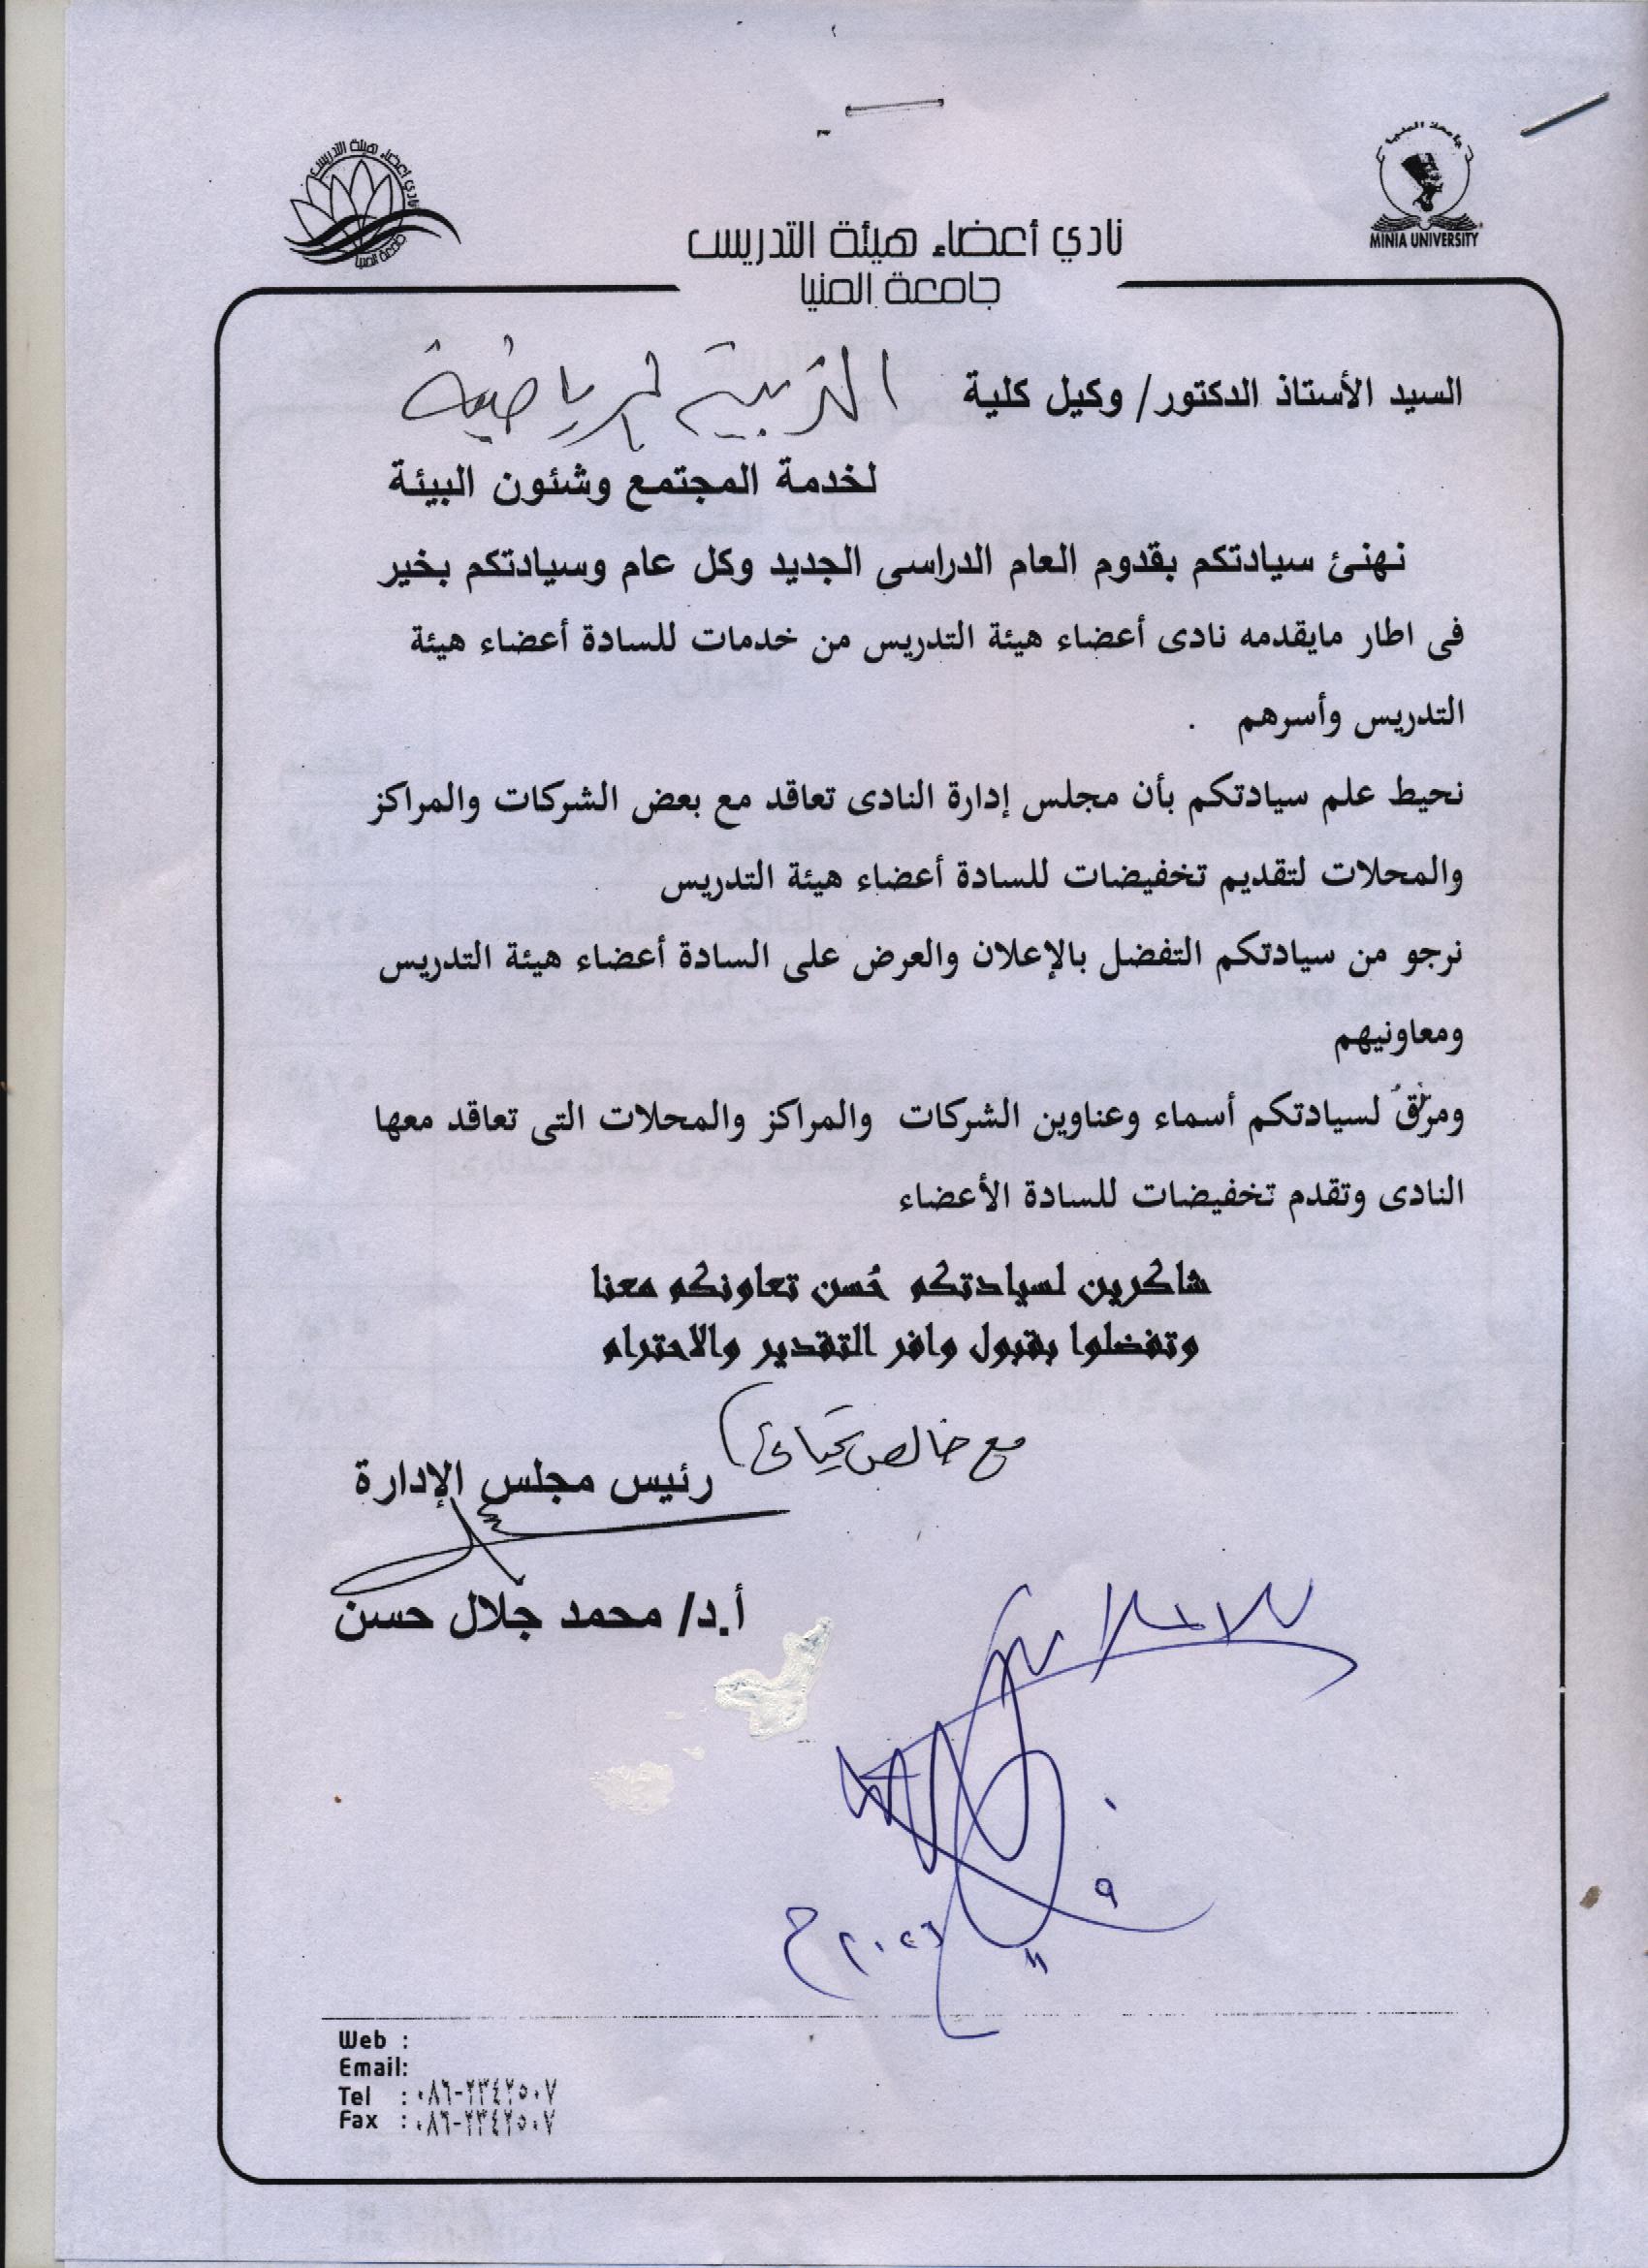 نادي أعضاء هيئة التدريس
جامعة المنيا
نادي أعضاء هيئة التدريس
جامعة المنيا
جامعة المنيا
MINIA UNIVERSITY
السيد الأستاذ الدكتور/ وكيل كلية التربية الرياضية
لخدمة المجتمع وشئون البيئة
نهنئ سيادتكم بقدوم العام الدراسى الجديد وكل عام وسيادتكم بخير
فى اطار مايقدمه نادى أعضاء هيئة التدريس من خدمات للسادة أعضاء هيئة
التدريس وأسرهم .
نحيط علم سيادتكم بأن مجلس إدارة النادى تعاقد مع بعض الشركات والمراكز
والمحلات لتقديم تخفيضات للسادة أعضاء هيئة التدريس
نرجو من سيادتكم التفضل بالإعلان والعرض على السادة أعضاء هيئة التدريس
ومعاونيهم
ومرفق لسيادتكم أسماء وعناوين الشركات والمراكز والمحلات التى تعاقد معها
النادى وتقدم تخفيضات للسادة الأعضاء
شاكرين لسيادتكم حُسن تعاونكم معنا
وتفضلوا بقبول وافر التقدير والاحترام
مع خالص تحياتى
رئيس مجلس الإدارة
أ.د/ محمد جلال حسن
Web :
Email:
Tel : ٠٨٦-٢٣٤٢٥٠٧
Fax : ٠٨٦-٢٣٤٢٥٠٧